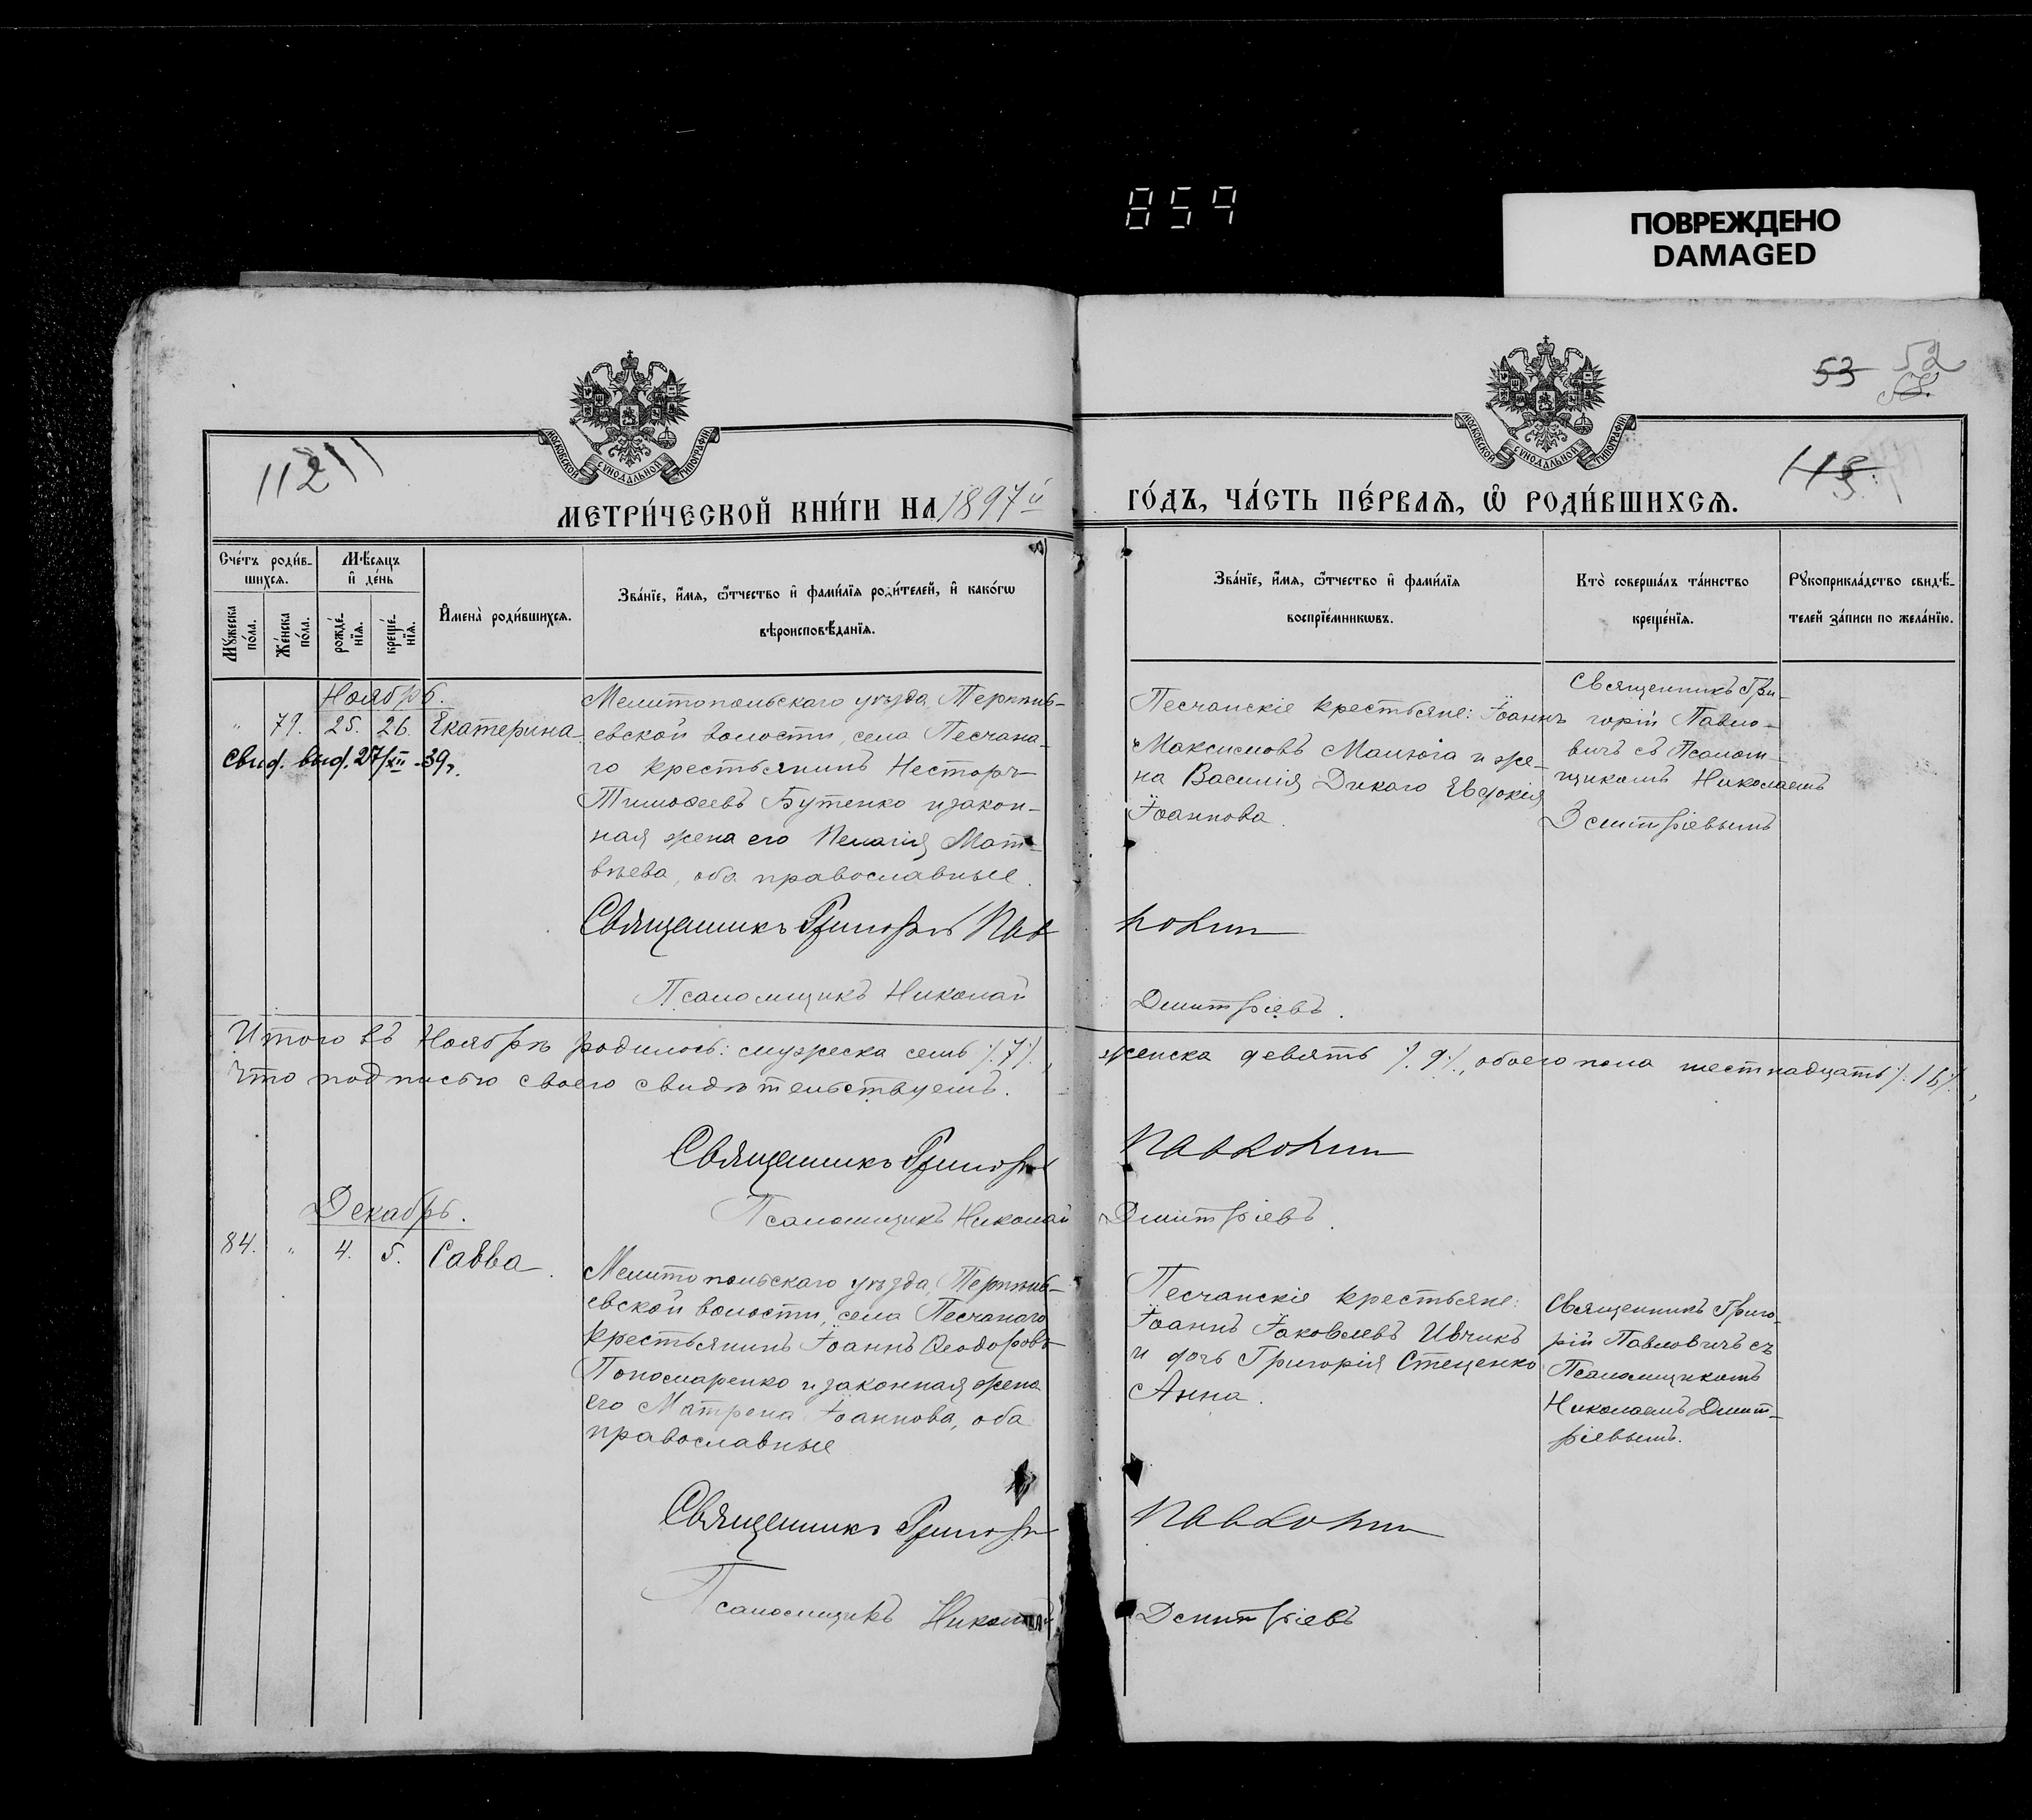 859
ПОВРЕЖДЕНО
DAMAGED
53 52
58.
112
113.
МОСКОВСКОЙ СѴНОДАЛЬНОЙ ТИПОГРАФІИ
МОСКОВСКОЙ СѴНОДАЛЬНОЙ ТИПОГРАФІИ
МЕТРИ́ЧЕСКОЙ КНИ́ГИ НА 1897й
ГО́ДЪ, ЧА́СТЬ ПЕ́РВАѦ, Ѡ҆ РОДИ́ВШИХСѦ.
Сче́тъ роди́в-
шихсѧ.
Мѣ́сѧцъ
и҆ де́нь
Мꙋ́жеска
по́ла.
Же́нска
по́ла.
рожде́-
нїѧ.
креще́-
нїѧ.
И҆мена̀ роди́вшихсѧ.
Зва́нїе, и҆́мѧ, ѻ҆́тчество и҆ фами́лїѧ роди́телей, и҆ како́гѡ
вѣроисповѣ́данїѧ.
Зва́нїе, и҆́мѧ, ѻ҆́тчество и҆ фами́лїѧ
воспрїе́мникѡвъ.
Кто̀ соверша́лъ та́инство
креще́нїѧ.
Рꙋкоприкла́дство свидѣ́-
телей за́писи по жела́нїю.
Ноябрь.
„ 79. 25. 26. Екатерина
свид. выд. 27/XII-39г.
Мелитопольскаго уѣзда, Терпѣнь-
евской волости, села Песчана-
го крестьянинъ Несторъ
Тимофеевъ Бутенко и закон-
ная жена его Пелагія Мат-
вѣева, оба православные.
Песчанскіе крестьяне: Іоаннъ
Максимовъ Малюга и же-
на Василія Дикаго Евдокія
Іоаннова.
Священникъ Гри-
горій Павло-
вичъ съ Псалом-
щикомъ Николаемъ
Дмитріевымъ
Священникъ Григорій Павловичъ
Псаломщикъ Николай Дмитріевъ.
Итого въ Ноябрѣ родилось: мужеска семь /.7/., женска девять /.9/., обоего пола шестнадцать /.16/.,
что подписью своею свидѣтельствуемъ.
Священникъ Григорій Павловичъ
Псаломщикъ Николай Дмитріевъ.
Декабрь.
84. „ 4. 5. Савва.
Мелитопольскаго уѣзда, Терпѣнь-
евской волости, села Песчанаго
крестьянинъ Іоаннъ Ѳеодоровъ
Пономаренко и законная жена
его Матрена Іоаннова, оба
православные
Песчанскіе крестьяне:
Іоаннъ Іаковлевъ Ивчикъ
и дочь Григорія Стеценко
Анна.
Священникъ Григо-
рій Павловичъ съ
Псаломщикомъ
Николаемъ Дмит-
ріевымъ.
Священникъ Григорій Павловичъ
Псаломщикъ Николай Дмитріевъ